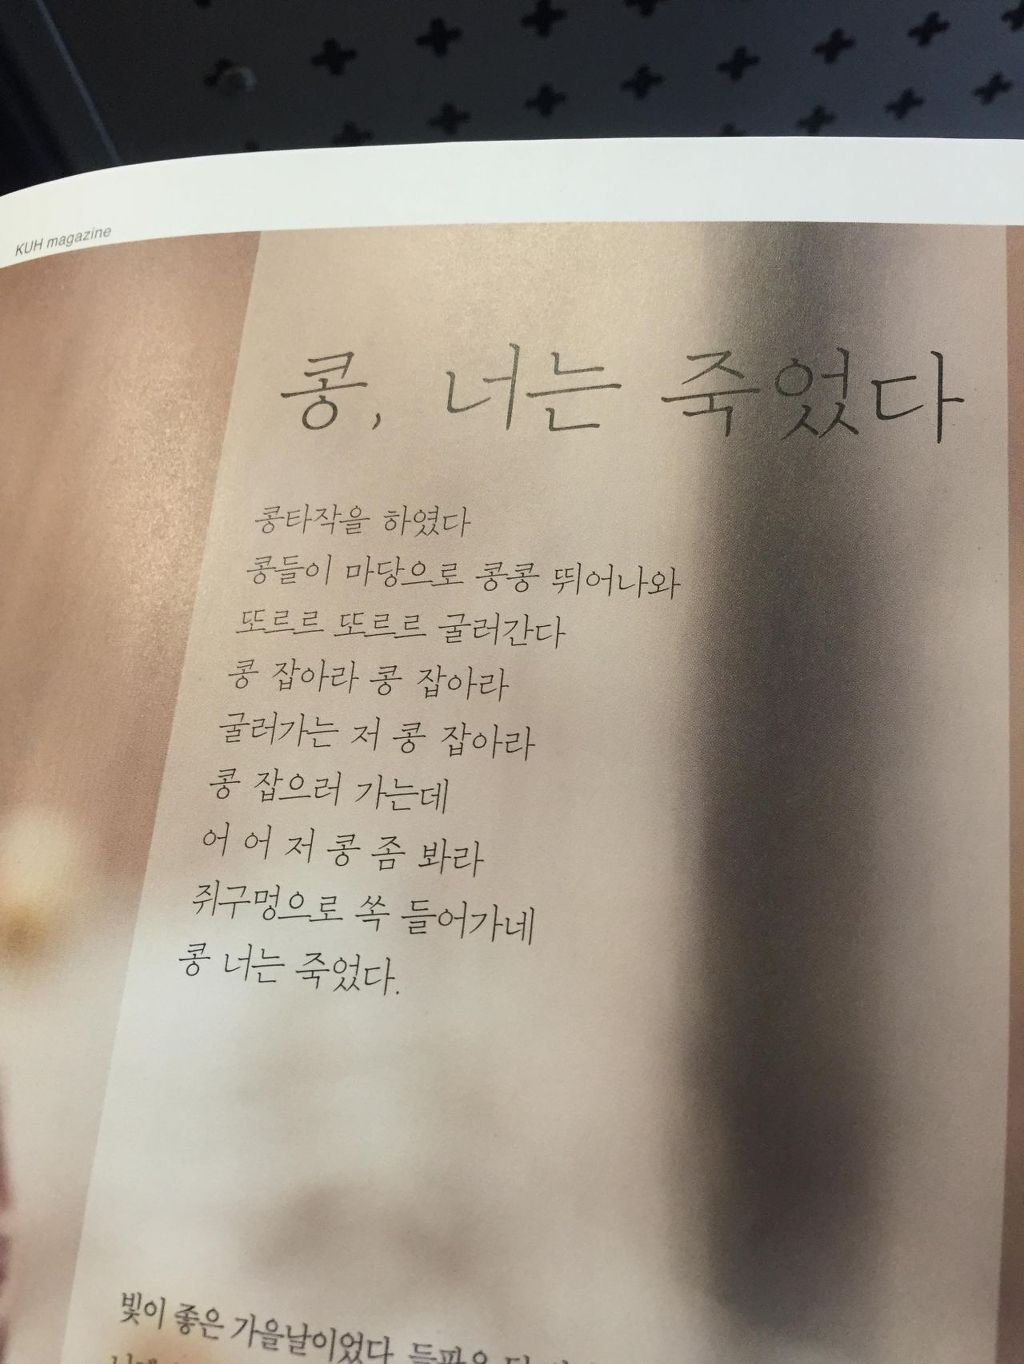 KUH magazine
콩, 너는 죽었다
콩타작을 하였다
콩들이 마당으로 콩콩 뛰어나와
또르르 또르르 굴러간다
콩 잡아라 콩 잡아라
굴러가는 저 콩 잡아라
콩 잡으러 가는데
어 어 저 콩 좀 봐라
쥐구멍으로 쏙 들어가네
콩 너는 죽었다.
빛이 좋은 가을날이었다. 들판은